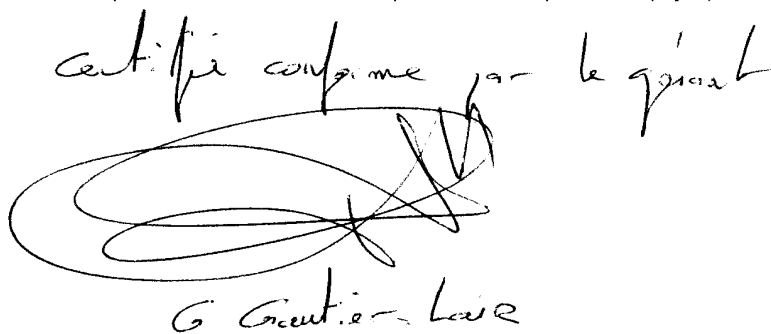 Certifié conforme par le gérant
G Gautier-Loire